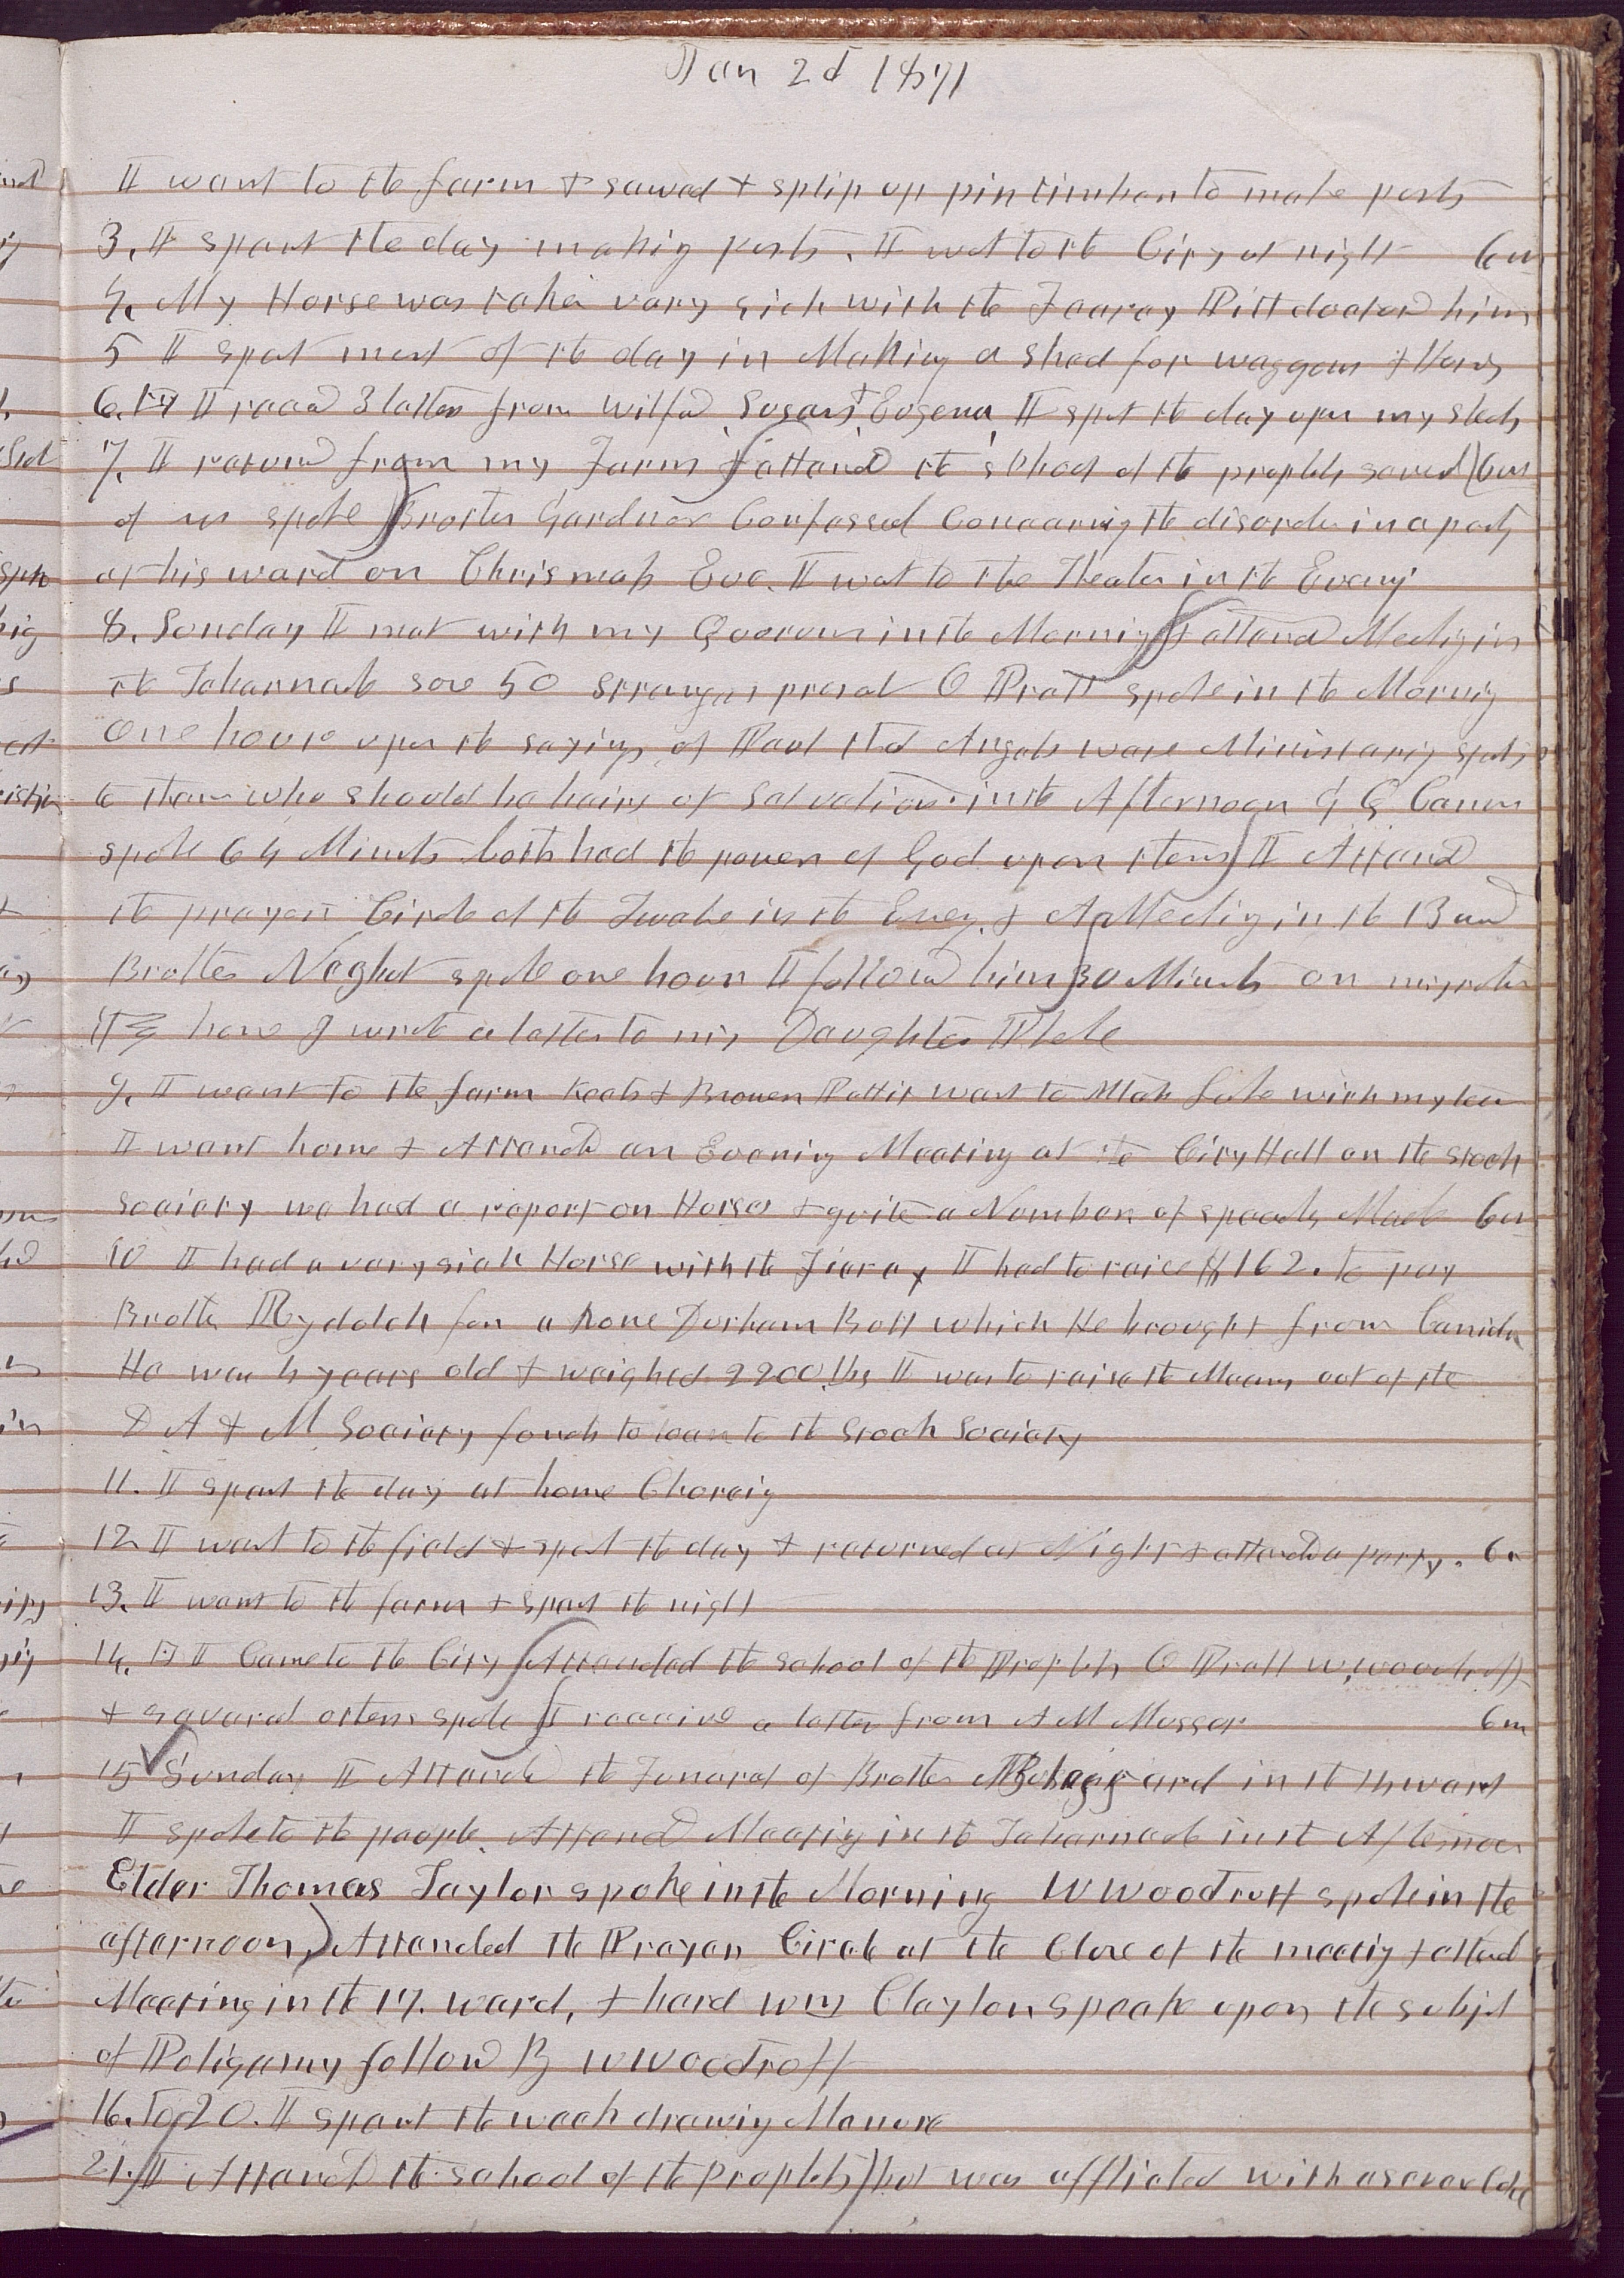 Jan 2d 1871
I went to the farm & sawed & split up pin timber to make posts
3. I spent the day making posts. I wet to the City at night 6 m
4. My Horse was taken very sick with the Jeerey Pitt doctord him
5 I spet most of the day in Making a shed for waggons & Horses
6. I recd 3 letters from Wilford Susan & Eugena I spet the day upon my sheds
7. I returnd from my Farm & attend the school of the prophets several 6 m
of us spoke Brother Gardner Confessed Concerning the disorder in a party
at his ward on Chrismass Eve. I wet to the Theater in the Evenig
8. Sunday I met with my Quorum in the Mornig & attend Meetig in
the Tabernacle some 50 strangers presat O Pratt spoke in the Mornig
One hour upon the sayings of Paul that Angels ware Ministerig spirits
to them who should be heirs of Salvation. in the Afternoon G Q Canon
spoke 64 Minuts both had the power of God upon them I Attend
the prayer Circle of the Twelve in the Eveng. & A Meetig in the 13 ward
Brother spoke one hour I followd him 30 Minuts on
home I wrote a letter to my Daughter Phebe
9. I went to the farm & Brown Pettit went to Utah Lake with my team
I went home & Attended an Evening Meeting at the City Hall on the stock
Society we had a report on Horses & quite a Number of speech Made 6 m
10 I had a very sick Horse with the Jierey I had to raise $162. to pay
Brother Rydalch for a pone Durham Bull which He brought from Canida
He was 4 years old & weighed 2200 lbs I was to raise the Money out of the
D A & M Society funds to loan to the Stock Society
11. I spent the day at home Choreig
12 I went to the field & spet the day & returned at Night & attended a party. 6 m
13. I went to the farm & spent the night
14. I Came to the City Attended the school of the Prophets O Pratt W. Woodruff
& several others spoke I receive a letter from A M Musser 6 m
15 Sunday I Attend the Funeral of Brother in the ward
I spoke to the people. Attend Meetig in the Tabernacle in the Afternoon
Elder Thomas Taylor spoke in the Morning W Woodruff spoke in the
afternoon, Attended the Prayer Circle at the Close of the meetig & attend
Meeting in the 17. ward, & hard Wm Clayton speak upon the subjet
of Poligamy followd By W Woodruff
16. To 20. I spent the week drawig Manure
21. I Attend the school of the Prophets but was afflicted with a severe Cold